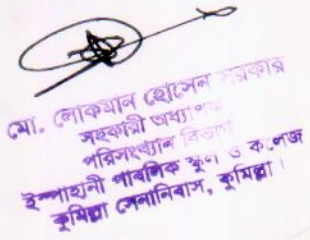 মো. লোকমান হোসেন সরকার
সহকারী অধ্যাপক
পরিসংখ্যান বিভাগ
ইস্পাহানী পাবলিক স্কুল ও কলেজ
কুমিল্লা সেনানিবাস, কুমিল্লা।